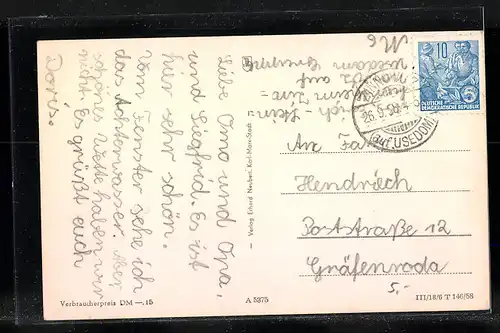 Liebe Oma und Opa,
und Siegfried. Es ist
hier sehr schön.
Vom Fenster sehe ich
das Achterwasser. Aber
schönes Wetter haben wir
nicht. Es grüßt euch
Doris.
10
DEUTSCHE
DEMOKRATISCHE REPUBLIK
5
26.5.59-
(auf USEDOM)
An Fam.
Hendrich
Poststraße 12
Gräfenroda
5,-
Verlag Erhard Neubert, Karl-Marx-Stadt
Verbraucherpreis DM —,15
A 5375
III/18/6 T 146/58